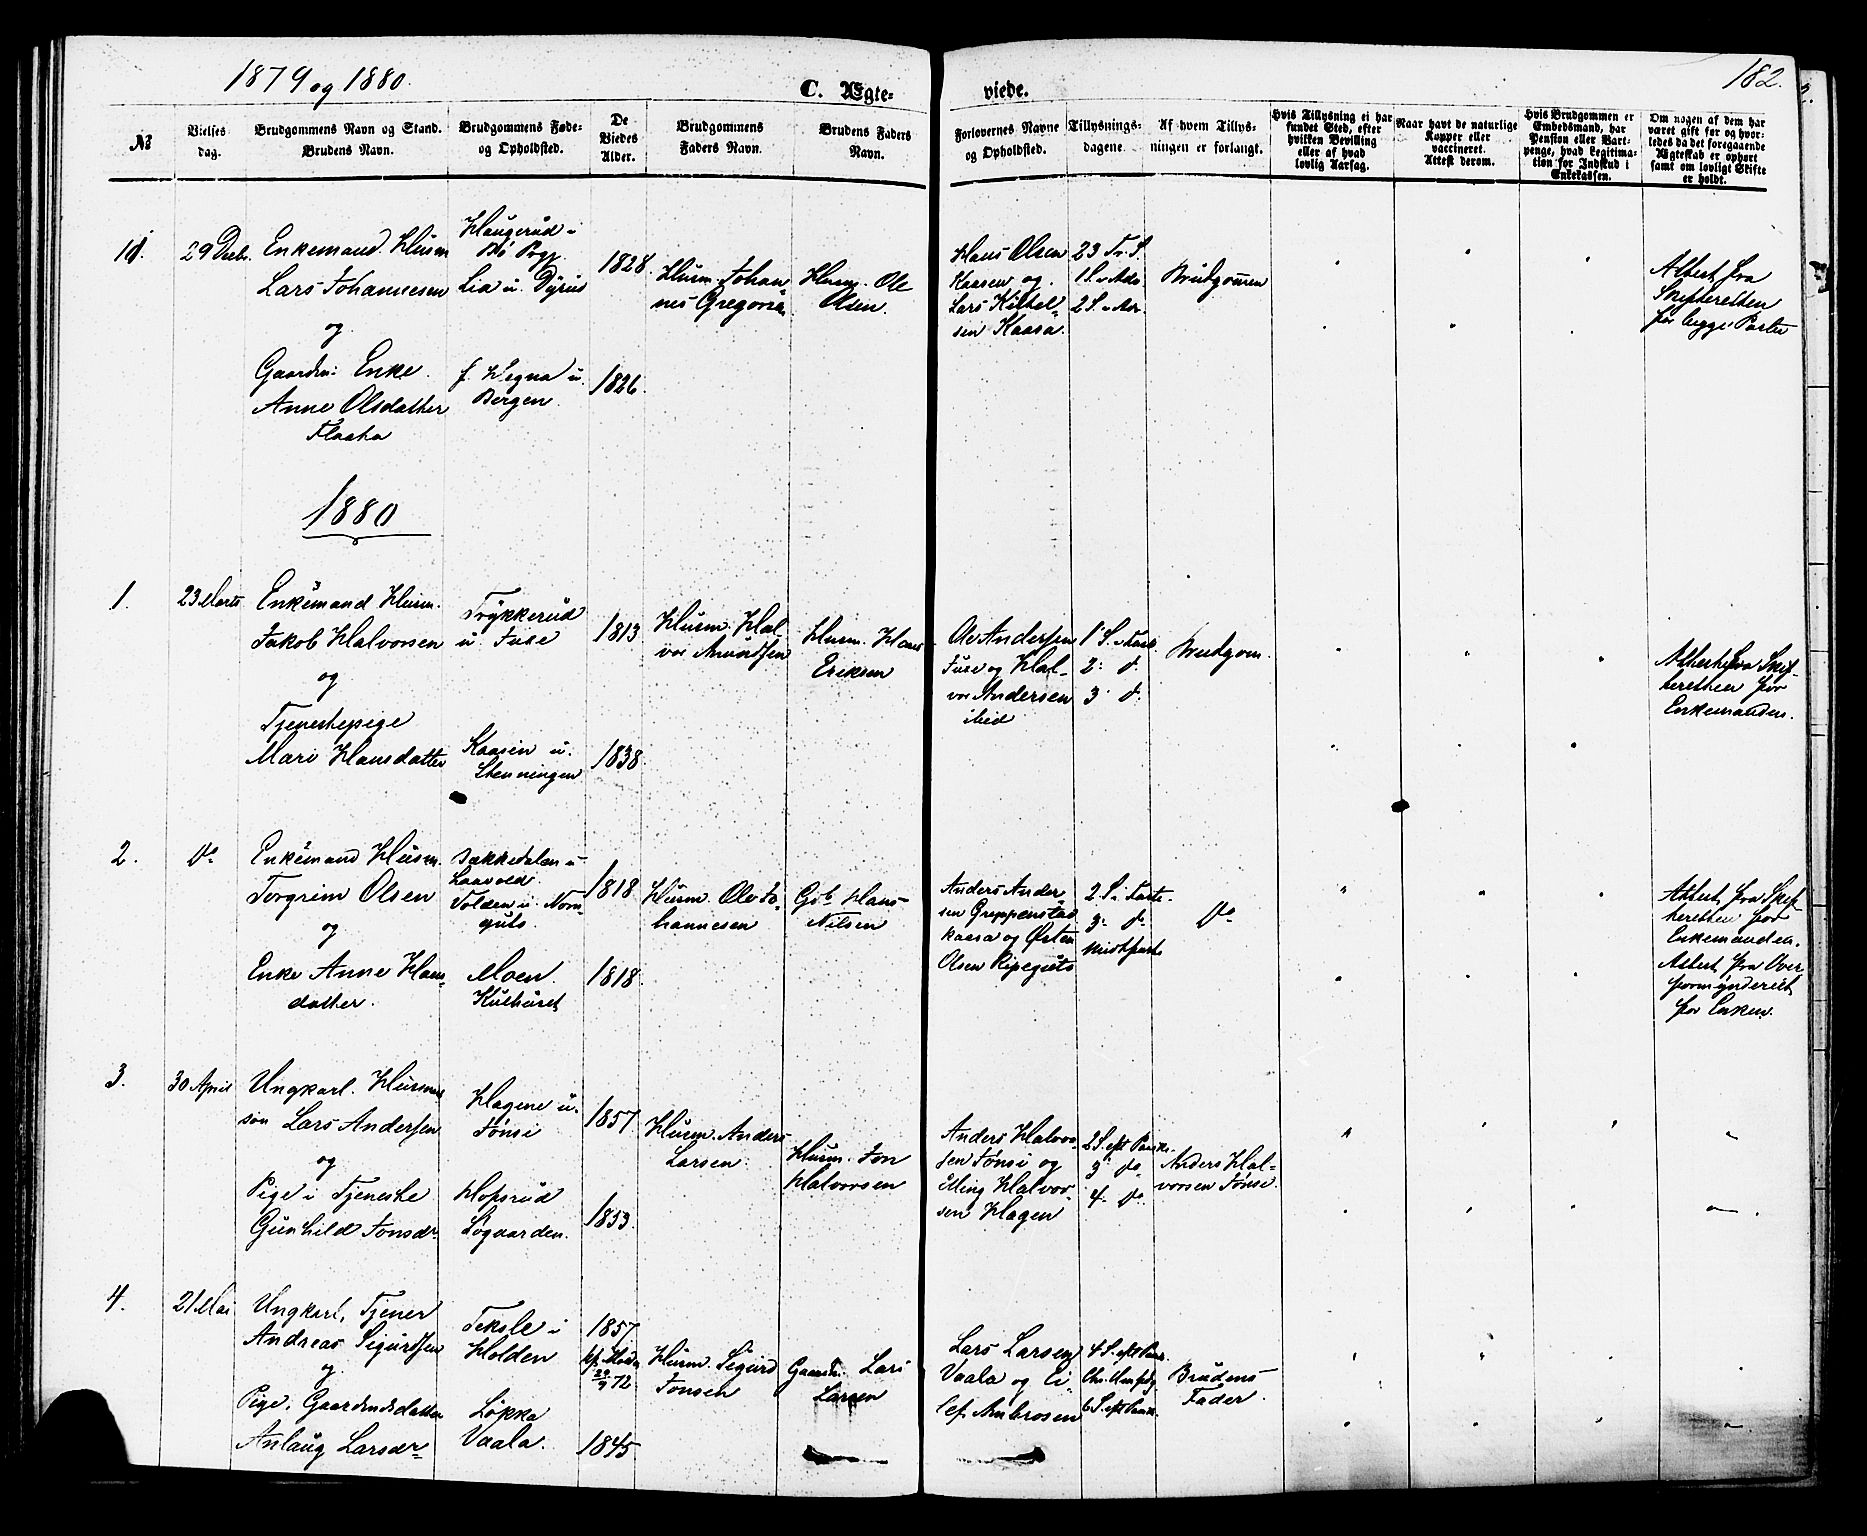 1879 og 1880.
C. Ægteviede.
182.
№
Vielses dag.
Brudgommens Navn og Stand. Brudens Navn.
Brudgommens Føde- og Opholdsted.
De Viedes Alder.
Brudgommens Faders Navn.
Brudens Faders Navn.
Forlovernes Navne og Opholdsted.
Tillysnings-dagene.
Af hvem Tillys-ningen er forlangt.
Hvis Tillysning ei har fundet Sted, efter hvilken Bevilling eller af hvad lovlig Aarsag.
Naar havt de naturlige Kopper eller vaccineret. Attest derom.
Hvis Brudgommen er Embedsmand, har Pension eller Vart-penge, hvad Legitima-tion for Indskud i Enkekassen.
Om nogen af dem har været gift før og hvor-ledes da det foregaaende Ægteskab er ophørt samt om lovligt Skifte er holdt.
29 Decbr.
Enkemand. Husm
Lars Johannesen
og
Gaardm: Enke
Anne Olsdatter
Flaata
Haugerud i
Bø Prgj.
Lia u.
f. Hegna u.
Bergen
1828.
1826
Husm. Johan
nes Gregoris
Husm. Ole
Olsen.
Hans Olsen
Kaasen og
Lars Kittel-
sen Kaasa.
23 Tr. S.
1 S. i Adv.
2 S. i Adv.
Brudgommen
Attest fra
Skifteretten
for begge Parter
1880
1.
23 Marts
Enkemand Husm.
Jakob Halvorsen
og
Tjenestepige
Mari Hansdatter
Trykkerud
u. Fuse
Kaasin u.
Stenningen
1813
1838
Husm. Hal-
vor Amundsen
Husm. Hans
Eriksen
Ole Andersen
Fuse og Hal-
vor Andersen
ibid
1 S. i Faste
2. do
3. do
Brudgom.
Attest fra Skif-
teretten for
Enkemanden.
2.
do
Enkemand Husm.
Torgrim Olsen
og
Enke Anne Hans-
datter.
Bækkedalen u
Laavold.
Moen.
Kulhuset
1818
1818
Husm. Ole Jo-
hannesen
Gbr. Hans
Nilsen
Anders Ander-
sen Greppenstad
Kaasa og Østen
Olsen Ripeguts
2 S. i Faste.
3. do.
Midtfaste
do
Attest fra Skif-
teretten for
Enkemanden.
Attest fra Over-
formynderiet
for Enken.
3.
30 April
Ungkarl. Husmands
søn Lars Andersen
og
Pige i Tjeneste
Gunhild Jonsdr.
Hagene u.
Jønsi
Hofsrud
Søgaarden.
1857
1853.
Husm. Anders
Larsen
Husm. Jon
Halvorsen
Anders Halvor-
sen Jønsi og
Halvor-
sen Hagen
2 S. eft Paaske.
3 do
4. do
Anders Hal-
vorsen Jønsi.
4.
21 Mai
Ungkarl, Tjener
Andreas Sigurdsen
og
Pige, Gaardmdsdatter
Anlaug Larsdr
Teksle i
Holden
Løkka
Vaala.
1857
1845
Husm. Sigurd
Jonsen
Gaardm. Lars
Larsen
Lars Larsen
Vaala og Ei-
lef Ambrosen
4 S. eft Paask.
Chr. Himfdg.
6 S. eft Paask.
Brudens
Fader.